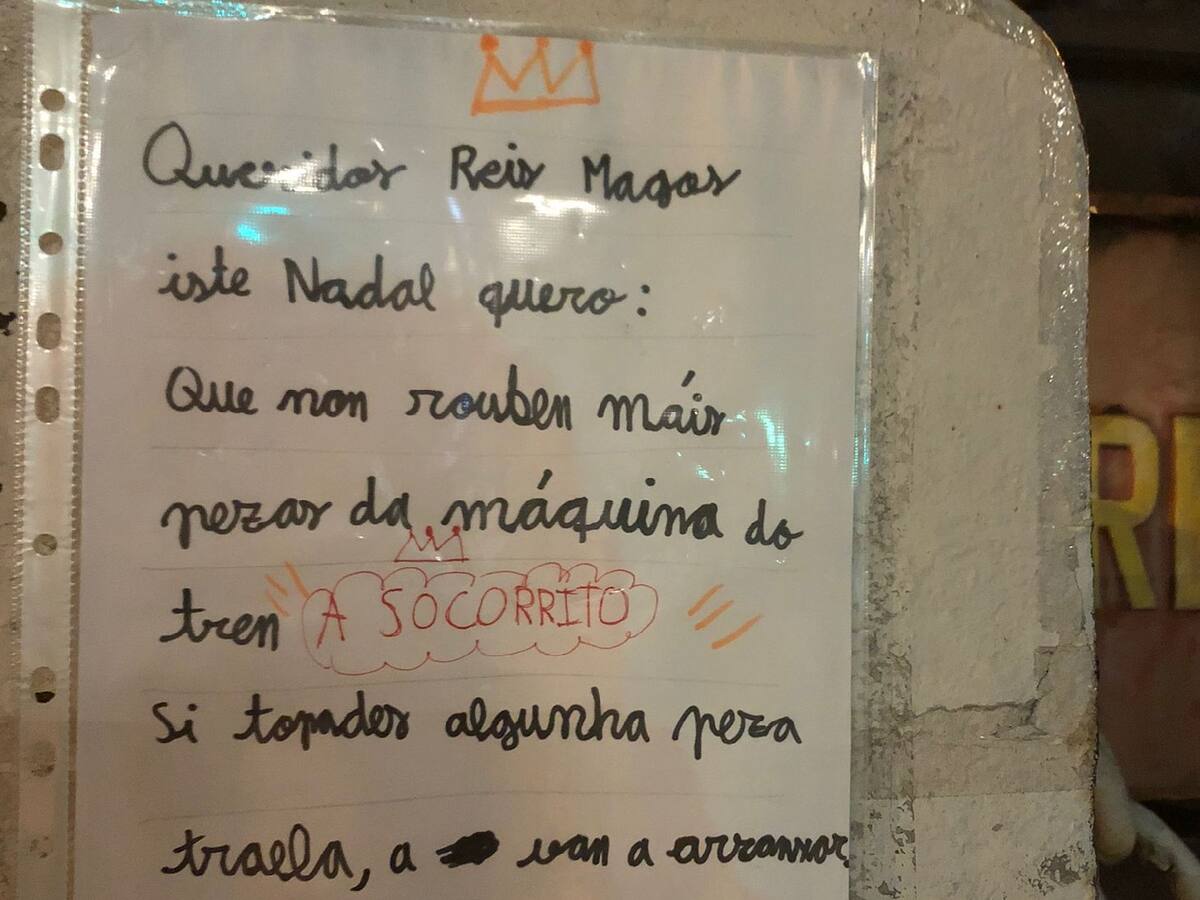 Queridos Reis Magos
iste Nadal quero:
Que non rouben máis
pezas da máquina do
tren A SOCORRITO
Si topades algunha peza
traela, a van a arranxar.